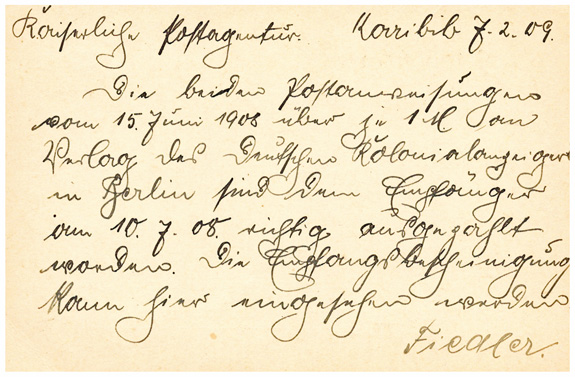 Kaiserliche Postagentur. Karibib 7.2.09.
Die beiden Postanweisungen
vom 15. Juni 1908 über je 1 M an
Verlag des Deutschen Kolonialanzeigers
in Berlin sind dem Empfänger
am 10.7.08. richtig ausgezahlt
worden. Die Empfangsbescheinigung
kann hier eingesehen werden
Fiedler.